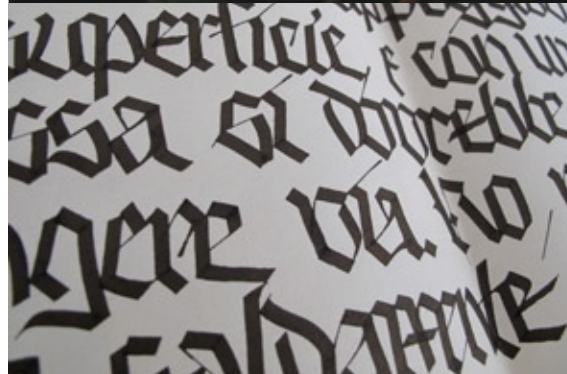 superficie, e con un
ssa si dovrebbe
gere via. Ho
saldamente